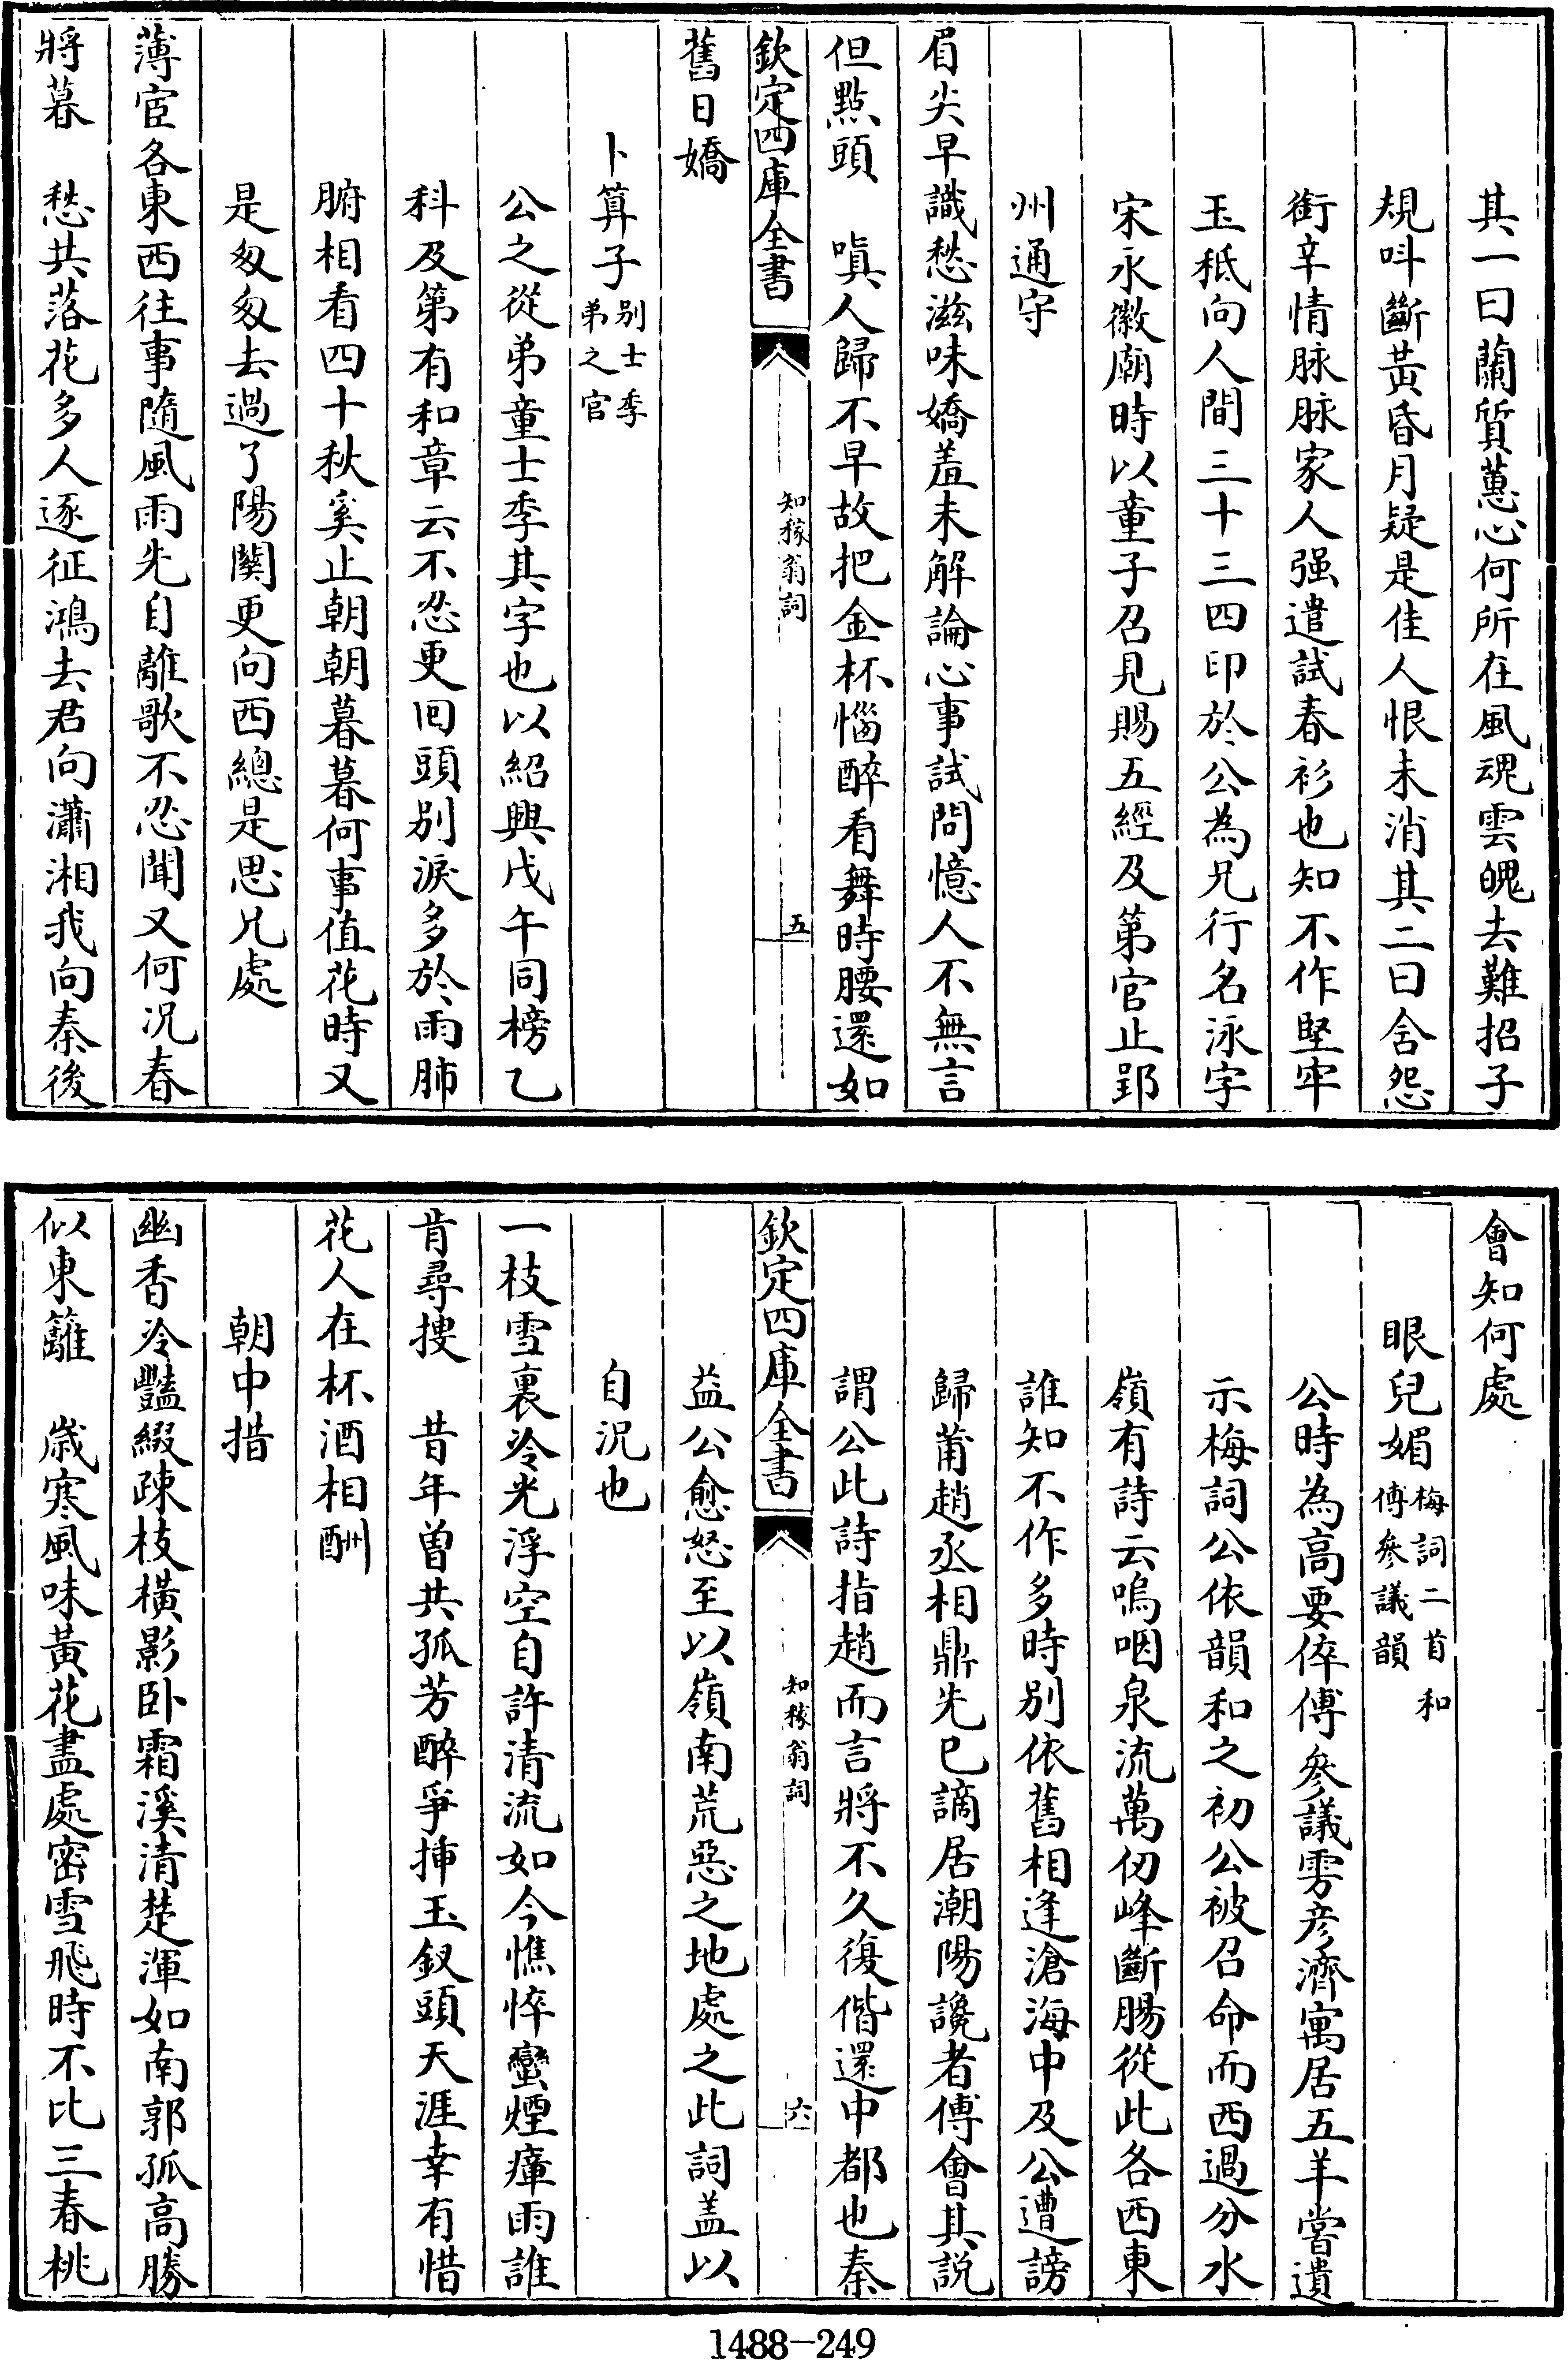 其一曰蘭質蕙心何所在風魂雲魄去難招子
規呌斷黃昏月疑是佳人恨未消其二曰含怨
銜辛情脉脉家人强遣試春衫也知不作堅牢
玉秪向人間三十三四印於公為兄行名泳字
宋永徽廟時以童子召見賜五經及第官止郢
州通守
眉尖早識愁滋味嬌羞未解論心事試問憶人不無言
但㸃頭　嗔人歸不早故把金杯惱醉看舞時腰還如
欽定四庫全書
知稼翁詞
五
舊日嬌
卜算子别士季弟之官
公之從弟童士季其字也以紹興戊午同榜乙
科及第有和章云不忍更回頭别淚多於雨肺
腑相看四十秋奚止朝朝暮暮何事值花時又
是匆匆去過了陽關更向西總是思兄處
薄宦各東西往事隨風雨先自離歌不忍聞又何况春
將暮　愁共落花多人逐征鴻去君向瀟湘我向秦後
會知何處
眼兒媚梅詞二首和傅參議韻
公時為高要倅傅參議雱彦濟寓居五羊嘗遺
示梅詞公依韻和之初公被召命而西過分水
嶺有詩云嗚咽泉流萬仞峰斷腸從此各西東
誰知不作多時别依舊相逢滄海中及公遭謗
歸莆趙丞相鼎先已謫居潮陽讒者傅會其説
謂公此詩指趙而言將不久復偕還中都也秦
欽定四庫全書
知稼翁詞
六
益公愈怒至以嶺南荒惡之地處之此詞盖以
自况也
一枝雪裏冷光浮空自許清流如今憔悴蠻煙瘴雨誰
肯尋搜　昔年曽共孤芳醉爭挿玉釵頭天涯幸有惜
花人在杯酒相酬
朝中措
幽香冷豔綴疎枝橫影卧霜溪清楚渾如南郭孤高勝
似東籬　歳寒風味黃花盡處密雪飛時不比三春桃
1488-249